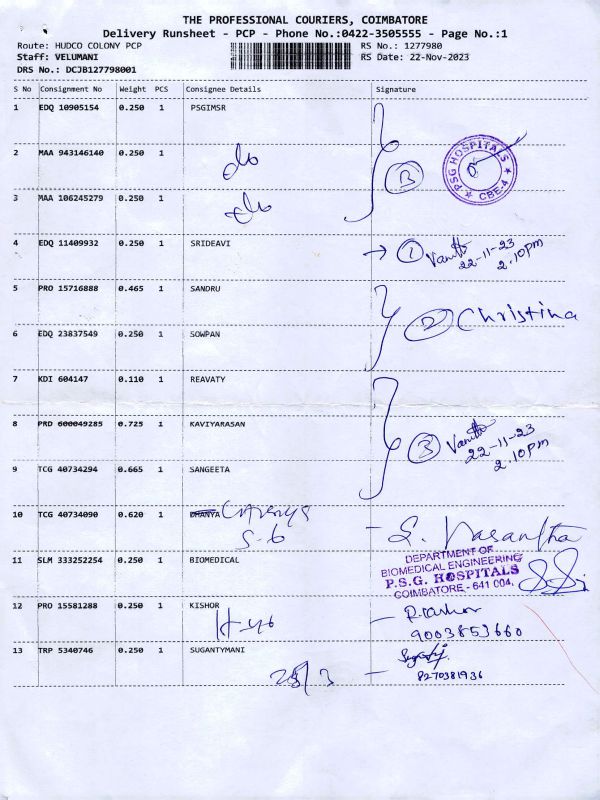 THE PROFESSIONAL COURIERS, COIMBATORE
Delivery Runsheet - PCP - Phone No.:0422-3505555 - Page No.:1
Route: HUDCO COLONY PCP RS No.: 1277980
Staff: VELUMANI RS Date: 22-Nov-2023
DRS No.: DCJB127798001
S No Consignment No Weight PCS Consignee Details Signature
1 EDQ 10905154 0.250 1 PSGIMSR
2 MAA 943146140 0.250 1 do
B
PSG HOSPITALS CBE-4
3 MAA 106245279 0.250 1 do
4 EDQ 11409932 0.250 1 SRIDEAVI 1 Vanitha
22-11-23
2.10pm
5 PRO 15716888 0.465 1 SANDRU
2 Christina
6 EDQ 23837549 0.250 1 SOWPAN
7 KDI 604147 0.110 1 REAVATY
8 PRD 600049285 0.725 1 KAVIYARASAN
3 Vanitha
22-11-23
2.10pm
9 TCG 40734294 0.665 1 SANGEETA
10 TCG 40734090 0.620 1 DHANYA
S-6
S. Vasantha
11 SLM 333252254 0.250 1 BIOMEDICAL
DEPARTMENT OF
BIOMEDICAL ENGINEERING
P.S.G. HOSPITALS
COIMBATORE - 641 004.
12 PRO 15581288 0.250 1 KISHOR
9003853660
13 TRP 5340746 0.250 1 SUGANTYMANI
8270381936